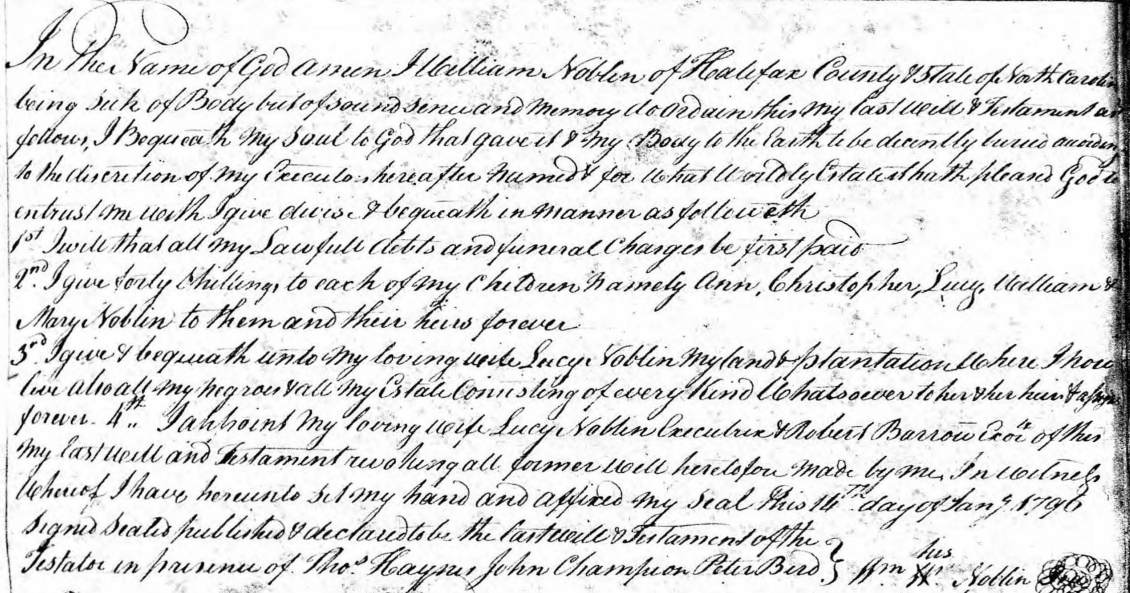 In the Name of God amen I William Noblen of Halefax County & State of North Carolin
being Sick of Body but of sound sence and Memory do ordain this my Last Will & Testament as
follows, I Bequeath My Saul to God that gave it & my Body to the Earth to be decently buried according
to the discretion of my Executors hereafter Named & for What Worldly Estate it hath pleased God to
entrust me with I give devise & bequeath in manner as followeth
1st I will that all my Lawfull debts and funeral Charges be first paid
2nd I give forty Shillings to each of my Children Namely Ann, Christopher, Lucy, William &
Mary Noblin to them and their heirs forever
3rd I give & bequeath unto My loving wife Lucy Noblin My land & plantation Where I now
live also all my negroes & all my Estate Consisting of every Kind Whatsoever to her & her heirs & assigns
forever. 4th. I appoint My loving wife Lucy Noblin Executrix & Robert Barrow Exor of this
My Last Will and Testament revoking all former Will heretofore made by me, In Witness
Whereof I have hereunto Set my hand and affixed my Seal this 14TH day of Jany. 1796
Signed Sealed published & declared to be the Last will & Testament of the
Testator in presence of. Thos Haynes John Champion Peter Bird } his
Wm Noblin